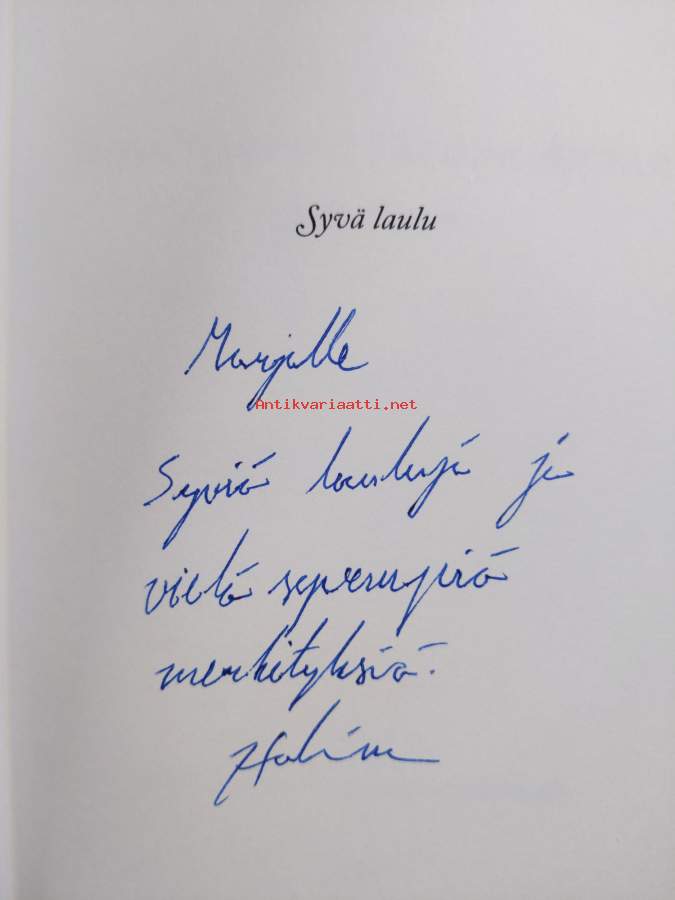 Syvä laulu
Marjalle
Antikvariaatti.net
Syviä lauluja ja
vielä syvempiä
merkityksiä.